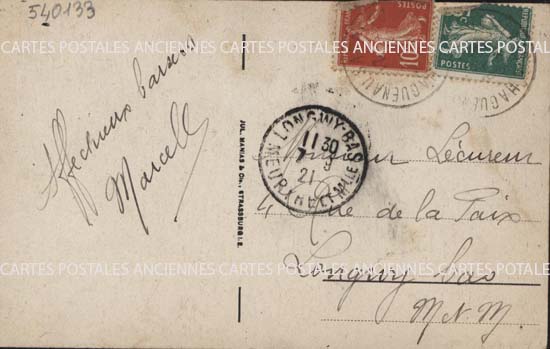 540133
POSTES
10
POSTES
HAGUENAU
HAGUENAU
Affectueux baisers
Marcelle
JUL. MANIAS & Cie., STRASSBURG i. E.
LONGWY-BAS
11 30
7 9
21
MEURTHE ET MLLE
Monsieur Lécureur
4 Rue de la Paix
Longwy bas
M. et M.
CARTES POSTALES ANCIENNES CARTES POSTALES ANCIENNES CARTES POSTALES ANCIENNES
CARTES POSTALES ANCIENNES CARTES POSTALES ANCIENNES CARTES POSTALES ANCIENNES